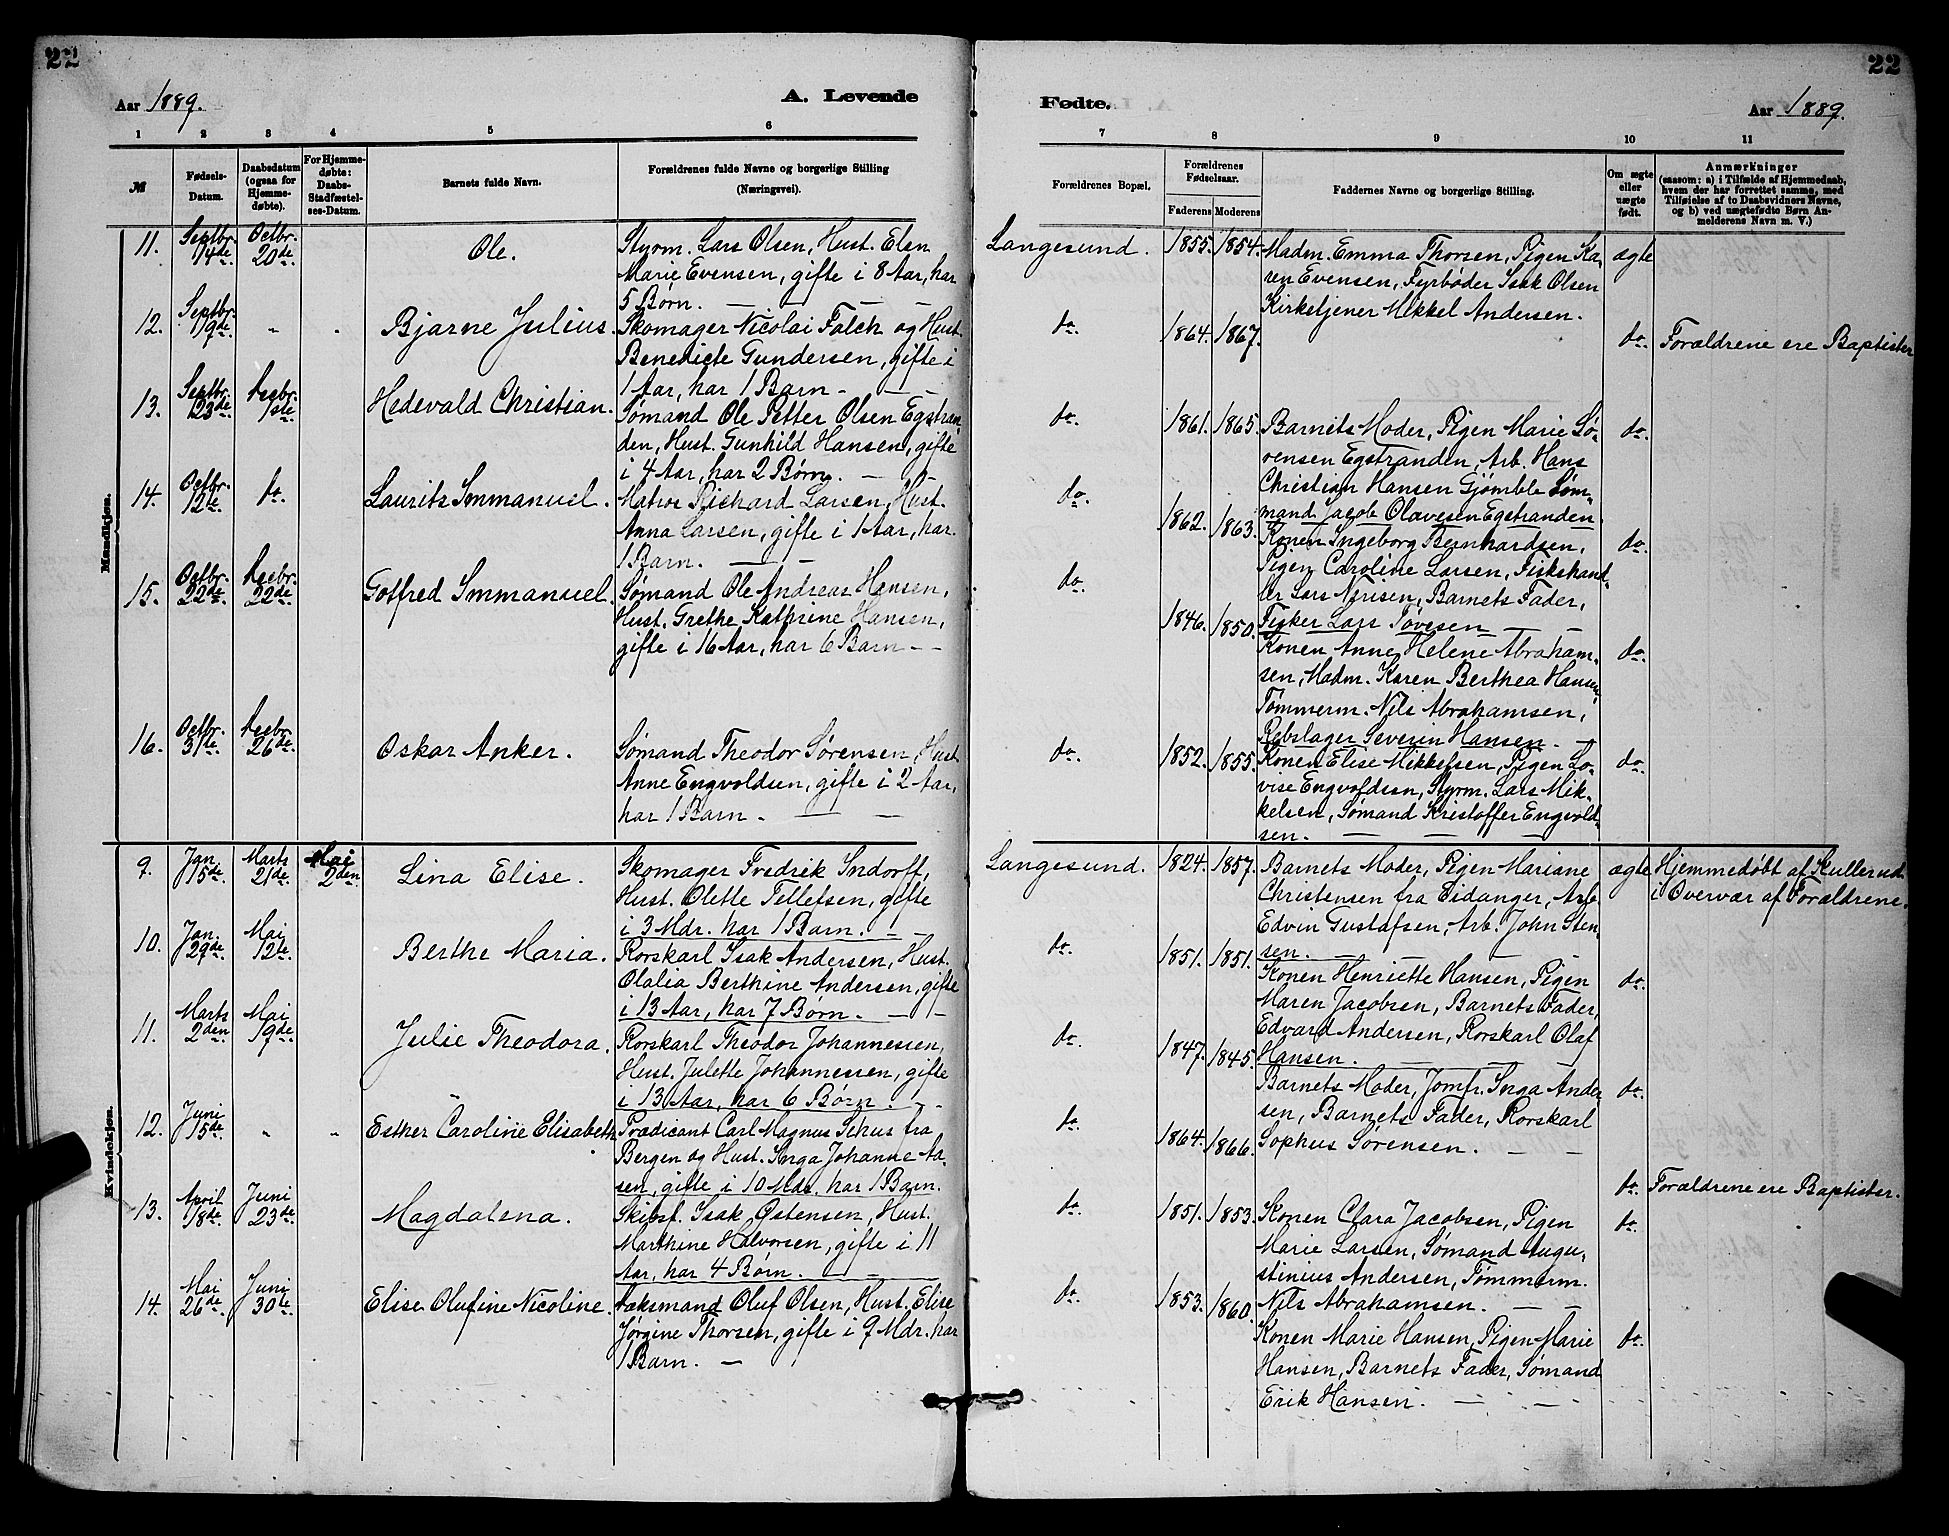 22
Aar 1889.
A. Levende
1 2 3 4 5 6
№
Fødsels-Datum.
Daabsdatum (ogsaa for Hjemmedøbte).
For Hjemmedøbte: Daabs-Stadfæstelses-Datum.
Barnets fulde Navn.
Forældrenes fulde Navne og borgerlige Stilling (Næringsvei).
Mandkjøn.
11. Septbr. 14de. Octbr. 20de. Ole.
Styrm. Lars Olsen, Hust. Elen
Marie Evensen, gifte i 8 Aar, har
5 Børn. — —
12. Septbr. 19de. " " Bjarne Julius.
Skomager Nicolai Falch og Hust.
Benedicte Gundersen, gifte i
1 Aar, har 1 Barn — —
13. Septbr. 23de. Decbr. 1ste. Hedevald Christian.
Sømand Ole Petter Olsen Egstran-
den, Hust. Gunhild Hansen, gifte
i 4 Aar, har 2 Børn. — —
14. Octbr. 12te. do. Laurits Immanuel.
Matros Richard Larsen, Hust.
Anna Larsen, gifte i 1 Aar, har
1 Barn. — —
15. Octbr. 22de. Decbr. 22de. Gotfred Immanuel.
Sømand Ole Andreas Hansen,
Hust. Grethe Kathrine Hansen,
gifte i 16 Aar, har 6 Barn — -
16. Octbr. 31te. Decbr. 26de. Oskar Anker.
Sømand Theodor Sørensen, Hust.
Anne Engvoldsen, gifte i 2 Aar,
har 1 Barn. — —
Kvindekjøn.
9. Jan. 15de. Marts 21de. Mai 2den. Lina Elise.
Skomager Fredrik Indorff,
Hust. Olette Tellefsen, gifte
i 3 Mdr. har 1 Barn. — -
10. Jan. 29de. Mai 12te. Berthe Maria.
Rorskarl Isak Andersen, Hust.
Olalia Berthine Andersen, gifte
i 13 Aar, har 7 Børn. — -
11. Marts 2den. Mai 19de. Julie Theodora.
Rorskarl Theodor Johannessen,
Hust. Julette Johannessen, gifte
i 13 Aar, har 6 Børn. - -
12. Juni 15de. " " Esther Caroline Elisabeth
Prædicant Carl Magnus Schus fra
Bergen og Hust. Inga Johanne Aa-
sen, gifte i 10 Mdr. har 1 Barn.
13. April 18de. Juni 23de. Magdalena.
Skibsf. Isak Østensen, Hust.
Marthine Halvorsen, gifte i 11
Aar, har 4 Børn. — -
14. Mai 26de. Juni 30te. Elise Olufine Nicoline.
Væksmand Oluf Olsen, Hust. Elise
Jørgine Thorsen, gifte i 9 Mdr. har
1 Barn. —
22
Fødte.
Aar 1889.
7 8 9 10 11
Forældrenes Bopæl.
Forældrenes Fødselsaar.
Faderens Moderens
Faddernes Navne og borgerlige Stilling.
Om ægte eller uægte født.
Anmærkninger
(saasom: a) i Tilfælde af Hjemmedaab,
hvem der har forrettet samme, med
Tilføielse af to Daabsvidners Navne,
og b) ved uægtefødte Børn An-
melderens Navn m. V.)
Langesund. 1855. 1854. Madm. Emma Thorsen, Pigen Ka- ægte
ren Evensen, Fyrbøder Isak Olsen
Kirketjener Mikkel Andersen.
do. 1864. 1867. do. Forældrene ere Baptister
do. 1861. 1865. Barnets Moder, Pigen Marie Sø- do.
rensen Egstranden, Arb. Hans
Christian Hansen Gjømble Søm-
mand Jacob Olavesen Egstranden
do. 1862. 1863. Konen Ingeborg Bernhardsen, do.
Pigen Caroline Larsen, Fiskehand-
ler Lars Nerisen, Barnets Fader,
Fisker Lars Tovesen — —
do. 1846. 1850. Konen Anne Helene Abraham- do.
sen, Madm. Karen Berthea Hansen,
Tømmerm. Nils Abrahamsen,
Rebslager Severin Hansen. —
do. 1852. 1855. Konen Elise Mikkelsen, Pigen Lo- do.
vise Engvoldsen, Styrm. Lars Mik-
kelsen, Sømand Kristoffer Engvold-
sen. — — —
Langesund. 1824. 1857. Barnets Moder, Pigen Mariane ægte Hjemmedøbt af Kullerud
Christensen fra Eidanger, Arb. i Overvær af Forældrene.
Edvin Gustafsen, Arb. John Sten-
sen. — — —
do. 1851. 1851. Konen Henriette Hansen, Pigen do.
Maren Jacobsen, Barnets Fader,
Edvard Andersen, Rorskarl Olaf
Hansen. — — —
do. 1847. 1845. Barnets Moder, Jomfr. Inga Ander- do.
sen, Barnets Fader, Rorskarl
Sophus Sørensen. — —
do. 1864. 1866. do. Forældrene ere Baptister.
do. 1851. 1853. Konen Clara Jacobsen, Pigen do.
Marie Larsen, Sømand Augu-
stinius Andersen, Tømmerm.
Nils Abrahamsen. — —
do. 1853. 1860. Konen Marie Hansen, Pigen Marie do.
Hansen, Barnets Fader, Sømand
Erik Hansen. — —